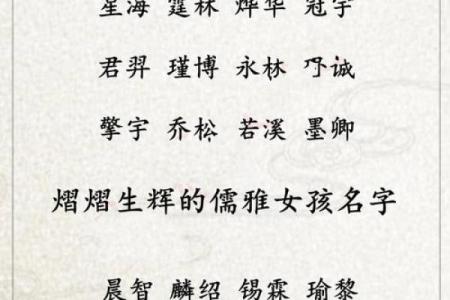 星海 霆林 烨华 冠宇
君羿 瑾博 永林 乃诚
擎宇 乔松 若溪 墨卿
熠熠生辉的儒雅女孩名字
晨智 麟绍 锡霖 瑜黎